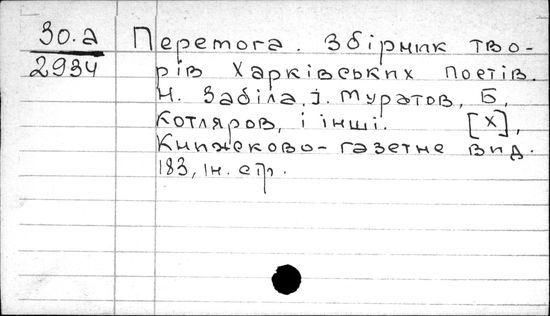 30.a
2934
Перемога. Збірник тво-
рів Харківських поетів.
Н. Забіла, І. Муратов, Б.
Котляров, і інші. [Х],
Книжково-газетне вид.
183, ін. стр.